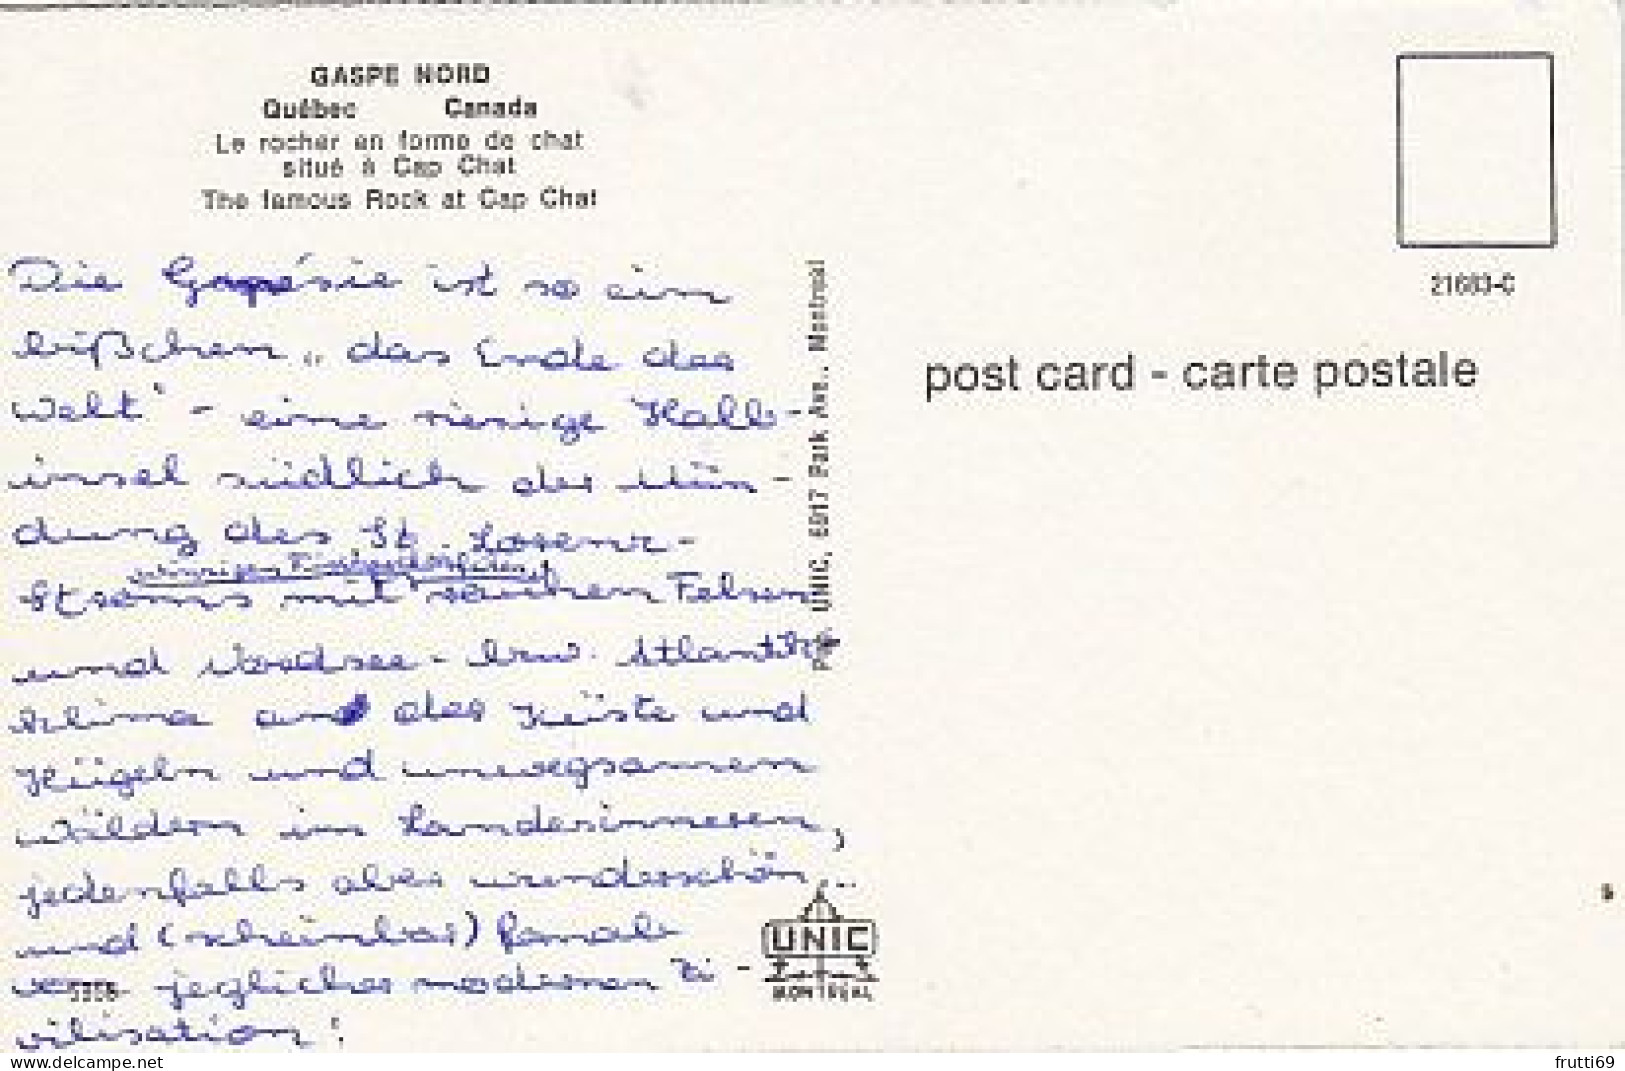 GASPE NORD
Québec Canada
Le rocher en forme de chat
situé à Cap Chat
The famous Rock at Cap Chat
Die Gaspésie ist so ein
bißchen „das Ende der
Welt" - eine riesige Halb-
insel südlich der Mün-
dung des St. Lorenz-
winzigen Fischerdörfern
Stroms mit rauhen Felsen
und Nordsee- bzw. Atlantik-
klima an der Küste und
Hügeln und unwegsamen
Wäldern im Landesinneren,
jedenfalls aber wunderschön...
und (scheinbar) fernab
von jeglicher modernen Zi-
vilisation!
UNIC, 6917 Park Ave., Montreal
UNIC
MONTREAL
21683-C
post card - carte postale
delcampe.net
frutti69